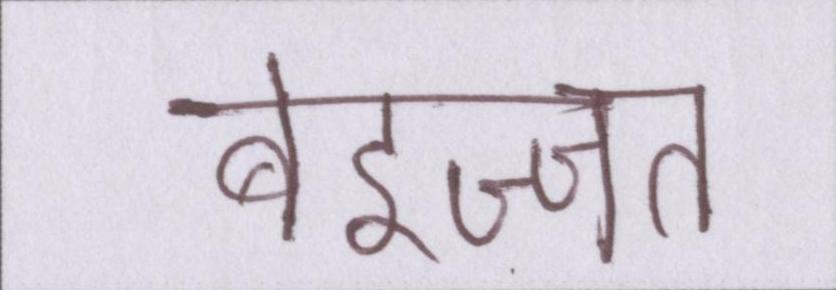 बेइज्जत